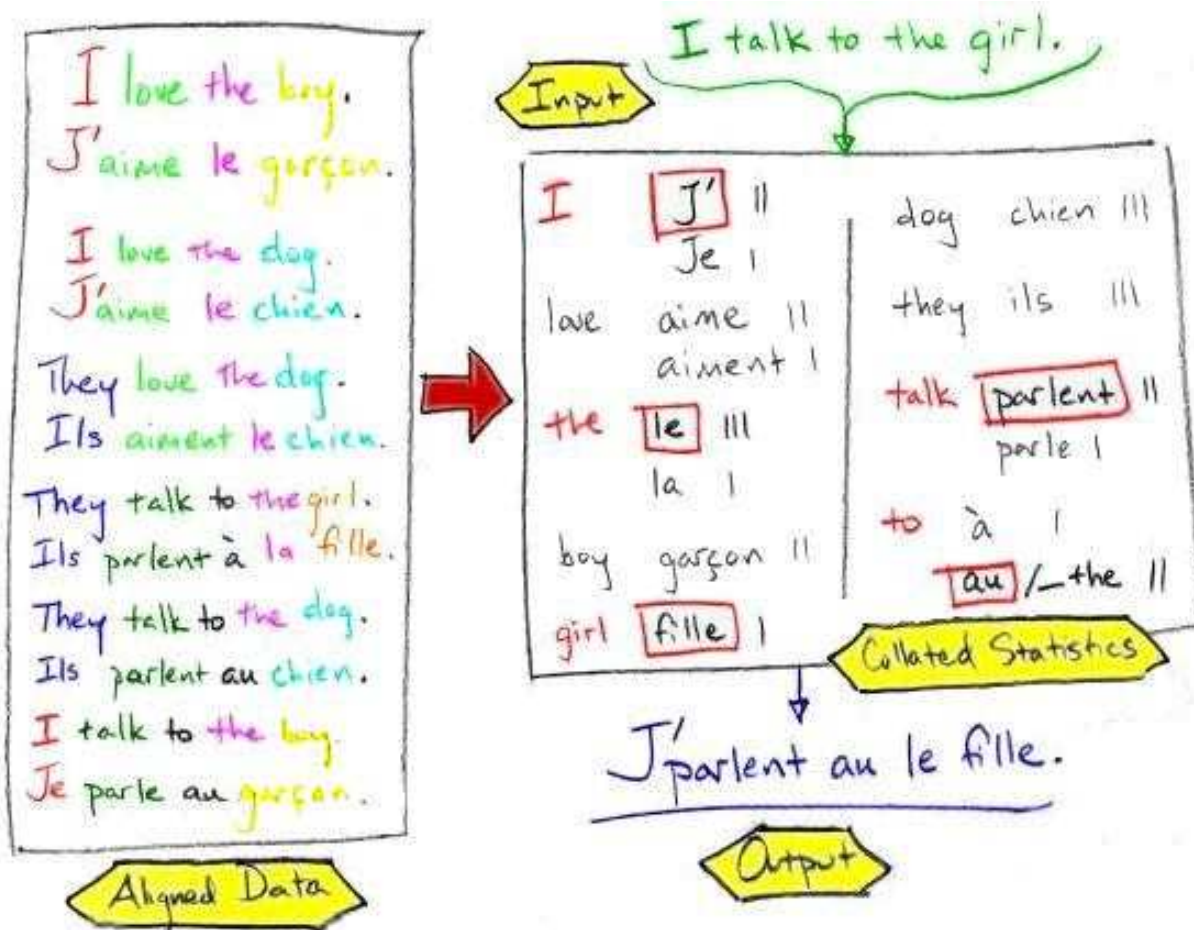 I love the boy.
J'aime le garçon.
I love the dog.
J'aime le chien.
They love the dog.
Ils aiment le chien.
They talk to the girl.
Ils parlent à la fille.
They talk to the dog.
Ils parlent au chien.
I talk to the boy.
Je parle au garçon.
Aligned Data
I talk to the girl.
Input
I J' ||
Je |
love aime ||
aiment |
the le |||
la |
boy garçon ||
girl fille |
dog chien |||
they ils |||
talk parlent ||
parle |
to à |
au /_the ||
Collated Statistics
J'parlent au le fille.
Output